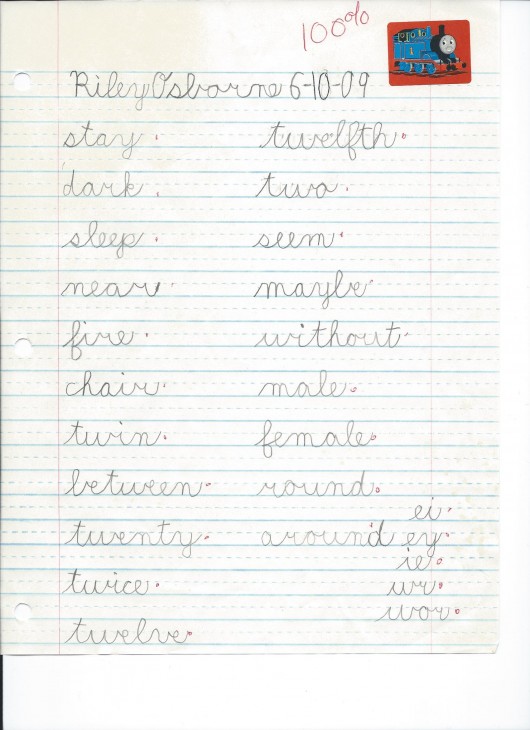 100%
Riley Osborne 6-10-09
stay twelfth
dark two
sleep seem
near maybe
fire without
chair male
twin female
between round
ei
twenty around ey
ie
twice wr
wor
twelve